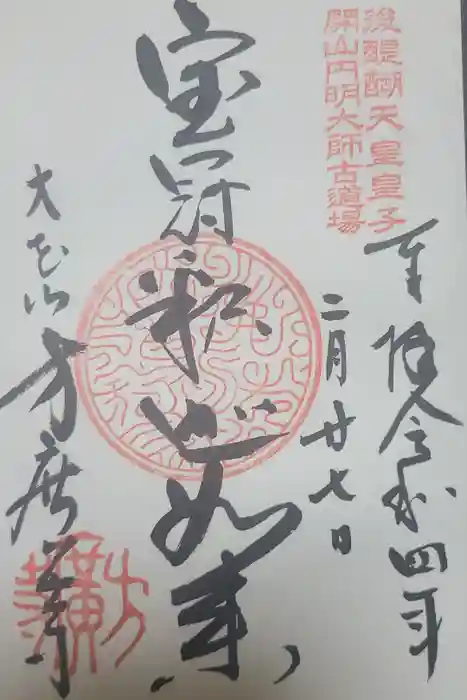 後醍醐天皇皇子
開山円明大師古道場
奉拝令和四年
二月廿七日
宝冠釈迦如来
大本山方廣寺
方廣寺